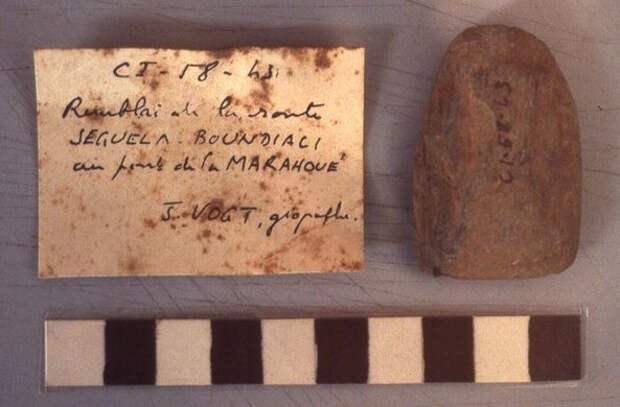 CI-58-43
Remblai de la route
SEGUELA. BOUNDIALI
au pont de la MARAHOUÉ
J. VOGT, géographe.
CI-58-43